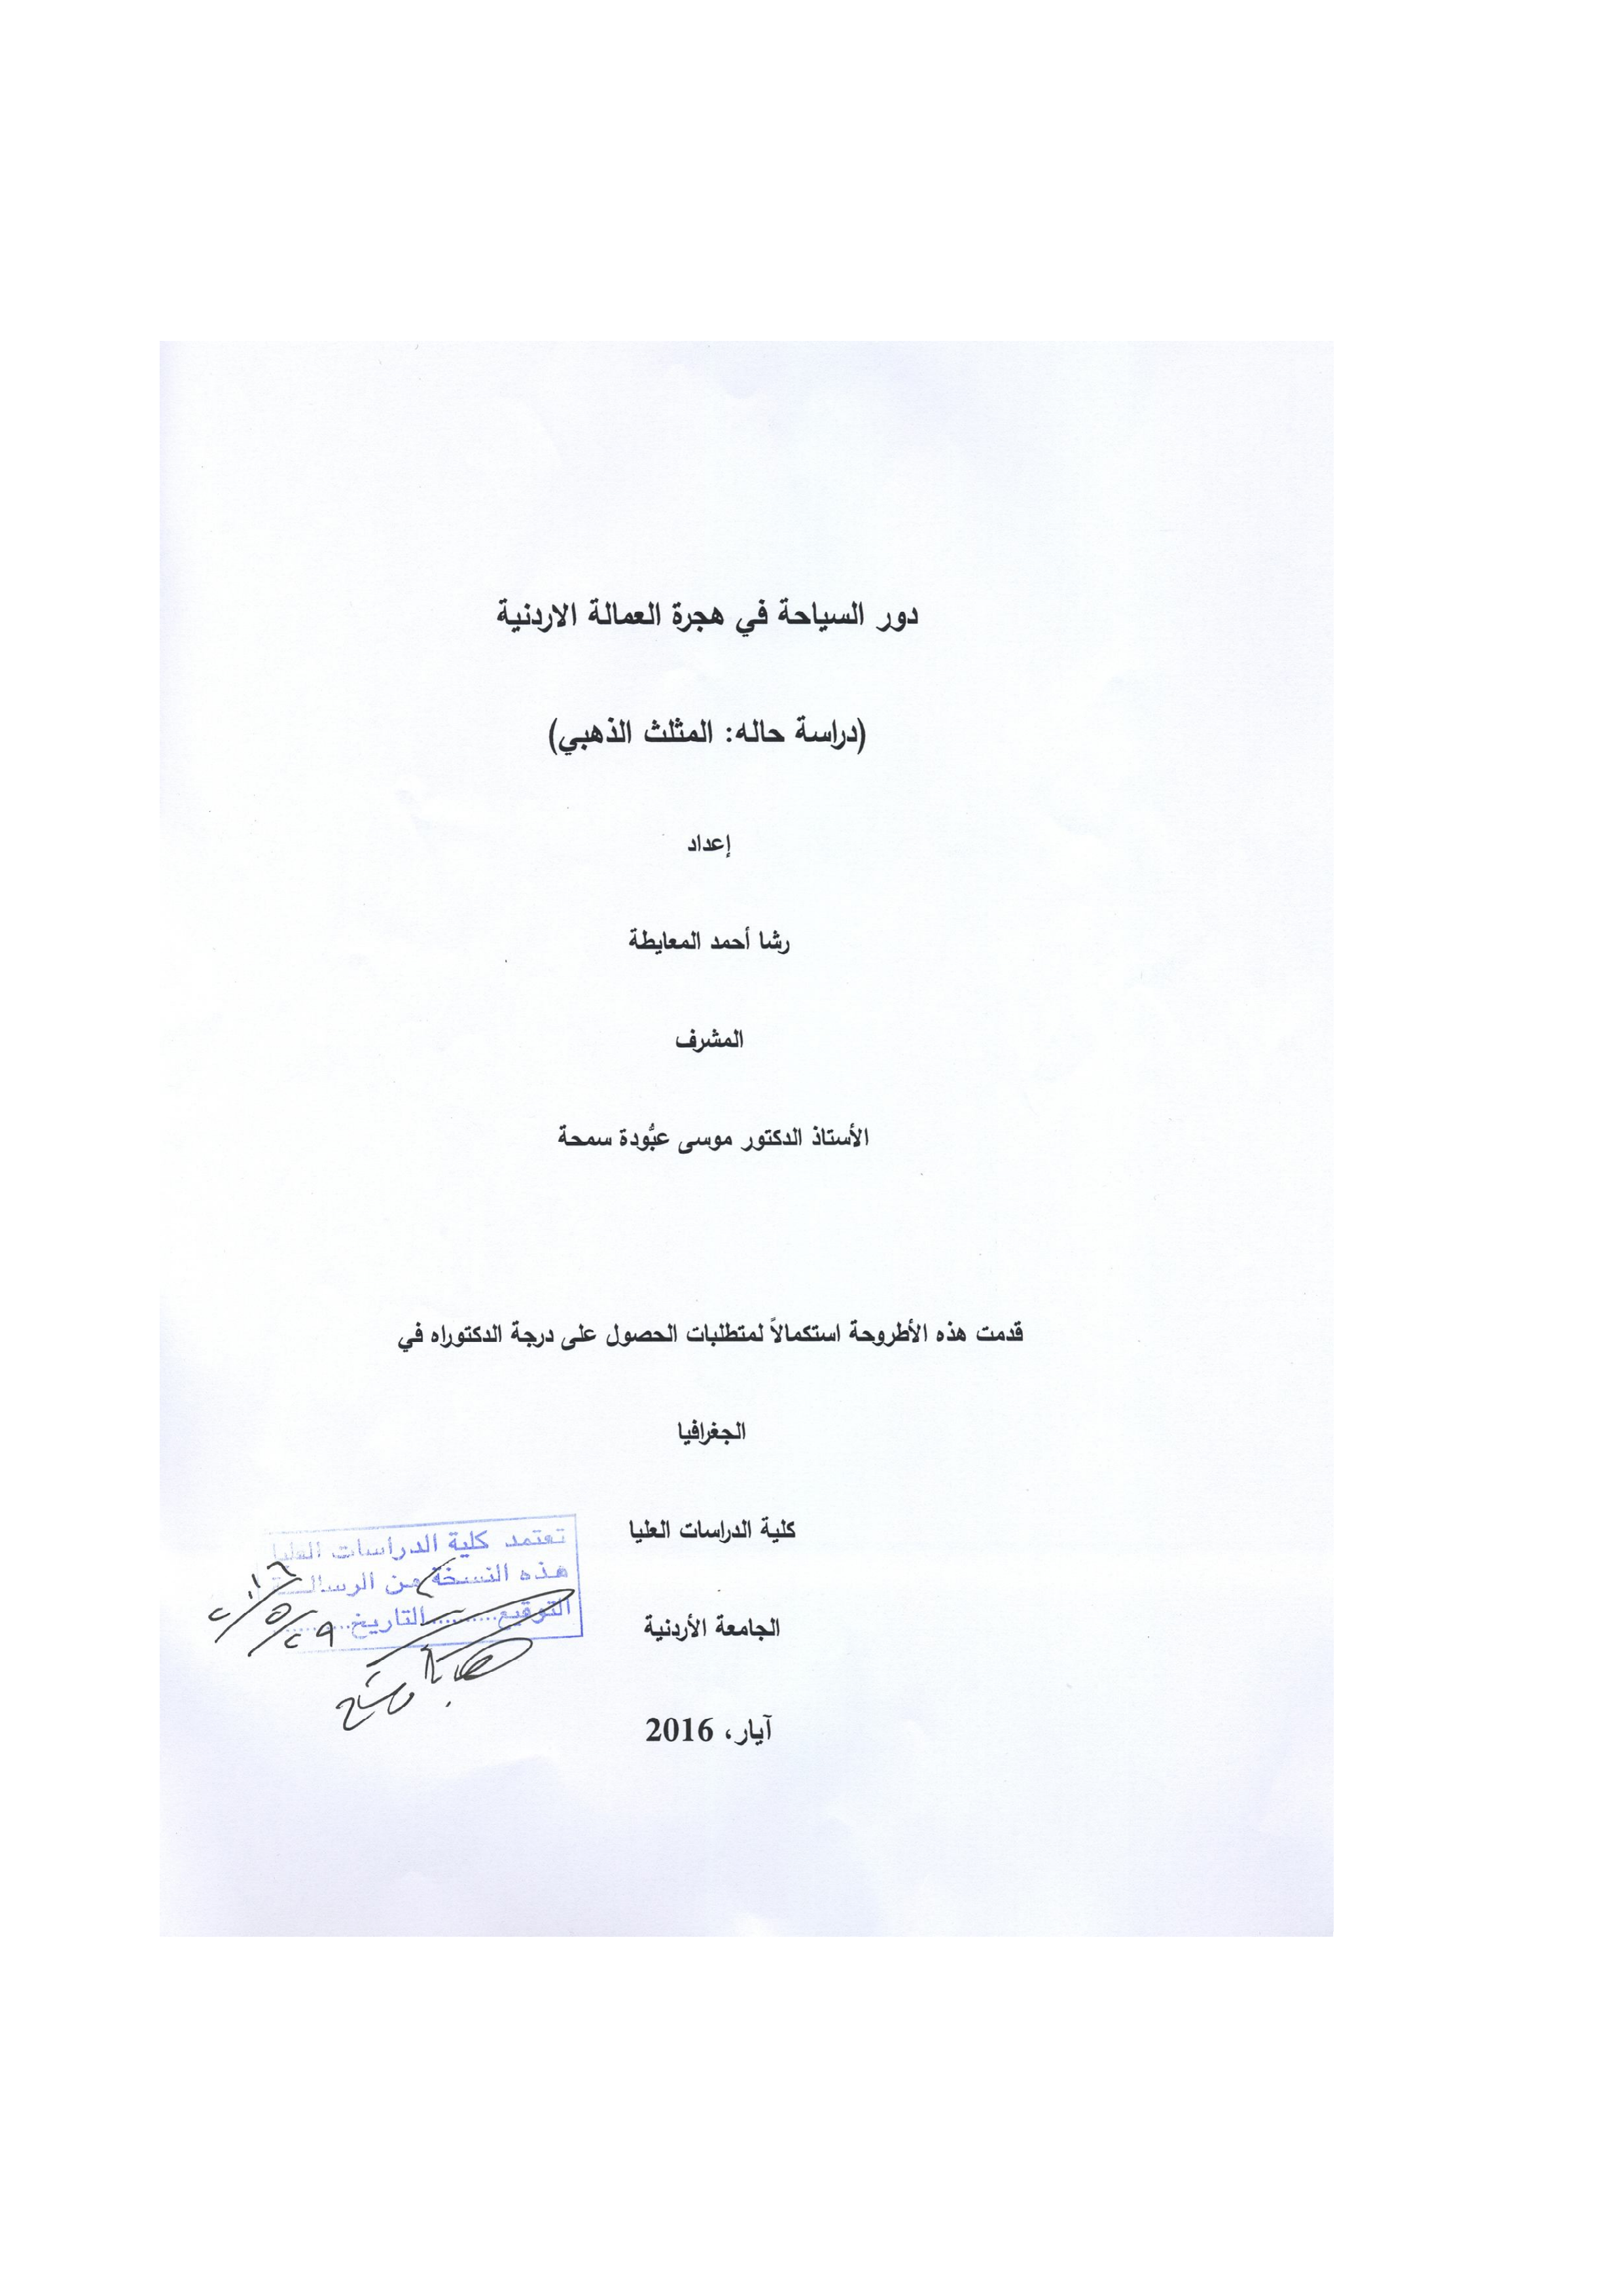 دور السياحة في هجرة العمالة الاردنية
(دراسة حاله: المثلث الذهبي)
إعداد
رشا أحمد المعايطة
المشرف
الأستاذ الدكتور موسى عبُّودة سمحة
قدمت هذه الأطروحة استكمالاً لمتطلبات الحصول على درجة الدكتوراه في
الجغرافيا
كلية الدراسات العليا
الجامعة الأردنية
آيار، 2016
تعتمد كلية الدراسات العليا
هذه النسخة من الرسالـــة
التوقيع..........التاريخ..........
٢٠١٦/٥/٢٩